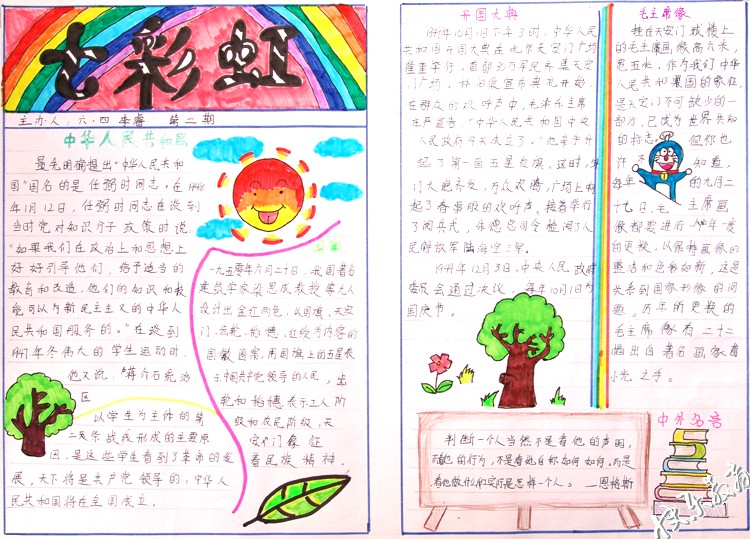 七彩虹
主办人：六·四 李睿 第二期
中华人民共和国
最先明确提出"中华人民共和
国"国名的是任弼时同志，在1948
年1月12日，任弼时同志在谈到
当时党对知识分子政策时说：
"如果我们在政治上和思想上
好好引导他们，给予适当的
教育和改造，他们的知识和技
能可以为新民主主义的中华人
民共和国服务的。"在谈到
1947年冬伟大的学生运动时，
他又说，"蒋介石统治
区
以学生为主体的第
二条战线形成的主要原
因，是这些学生看到了革命的发
展，天下将是共产党领导的，中华人
民共和国将在全国成立。
一九五零年六月二十日，我国著名
建筑学家梁思成教授等九人
设计出金红两色，以国旗、天安
门、齿轮、稻穗、红绶为内容的
国徽图案，用国旗上的五星表
示中国共产党领导的人民，齿
轮和稻穗表示工人阶
级和农民阶级，天
安门象征
着民族精神。
开国大典
1949年10月1日下午3时，中华人民
共和国开国大典在北京天安门广场
隆重举行，首都30万军民齐集天安
门广场，林伯渠宣布典礼开始，
在群众的欢呼声中，毛泽东主席
庄严宣告："中华人民共和国中央
人民政府今天成立了。"他亲手升
起了第一面五星红旗，这时，
门大炮齐发，万众欢腾，广场上响
起了春雷般的欢呼声。接着举行
了阅兵式，朱德总司令检阅了人
民解放军陆海空三军。
1949年12月3日，中央人民政府
委员会通过决议，每年10月1日为
国庆节。
毛主席像
挂在天安门城楼上
的毛主席画像高六米，
宽五米，作为我们中华
人民共和国的象征，
是天安门不可缺少的一
部分，已成为世界共知
的标志。但你也
许不知道，
每年的九月二
十七日，毛主席画
像都要进行一年一度
的更换，以保持画像的
整洁和色彩如新，这是
关系到国家形像的问
题。历年所更换的
毛主席像有二十二
幅出自著名画家葛
小光之手。
中外名言
判断一个人当然不是看他的声明，
而看他的行为，不是看他自称如何如何，而是
看他做什么和实际是怎样一个人。——恩格斯